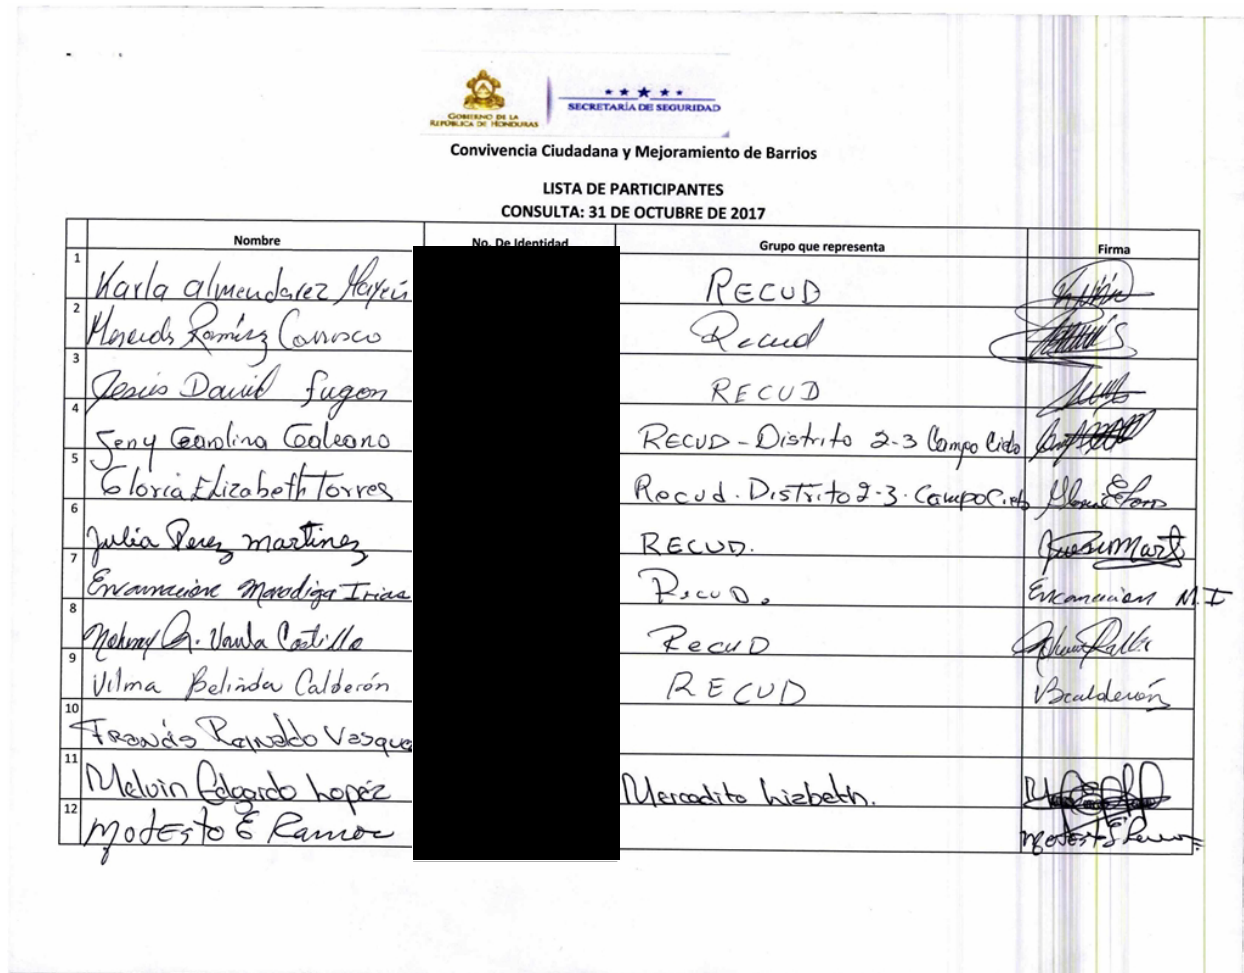 GOBIERNO DE LA
REPÚBLICA DE HONDURAS
SECRETARÍA DE SEGURIDAD
Convivencia Ciudadana y Mejoramiento de Barrios
LISTA DE PARTICIPANTES
CONSULTA: 31 DE OCTUBRE DE 2017
Nombre No. De Identidad Grupo que representa Firma
1 Karla almendarez RECUD
2 Ramirez Carrasco Recud
3 Jesús David fugon RECUD
4 Jeny Carolina Galeano RECUD - Distrito 2-3 Campo Cielo
5 Gloria Elizabeth Torres Recud. Distrito 2-3. Campo Cielo
6 Julia Perez martinez RECUD.
7 Encarnacion Maradiga Irias Recud. Encarnacion M.I
8 Castillo RecuD
9 Vilma Belinda Calderón RECUD Bcalderón
10 Francis Reinaldo Vasque
11 Melvin Edgardo Lopéz Mercadito Lizbeth.
12 Modesto E Ramos